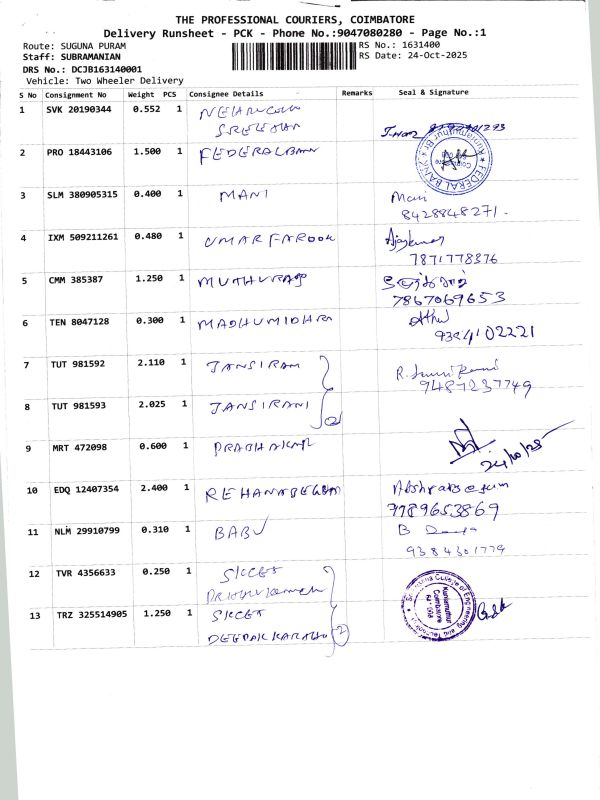 THE PROFESSIONAL COURIERS, COIMBATORE
Delivery Runsheet - PCK - Phone No.:9047080280 - Page No.:1
Route: SUGUNA PURAM
RS No.: 1631400
Staff: SUBRAMANIAN
RS Date: 24-Oct-2025
DRS No.: DCJB163140001
Vehicle: Two Wheeler Delivery
S No Consignment No Weight PCS Consignee Details Remarks Seal & Signature
1 SVK 20190344 0.552 1
2 PRO 18443106 1.500 1 FEDERAL BANK
FEDERAL BANK Kuniamuthur Br
3 SLM 380905315 0.400 1 MANI Mani
8428848271.
4 IXM 509211261 0.480 1 UMAR FAROOK Ajaykumar
7871778376
5 CMM 385387 1.250 1 MUTHURAJ
7867069653
6 TEN 8047128 0.300 1 MADHUMIDHA
9384102221
7 TUT 981592 2.110 1 JANSIRANI
9487237749
8 TUT 981593 2.025 1 JANSIRANI 2
9 MRT 472098 0.600 1 PRABHAKAR
24/10/25
10 EDQ 12407354 2.400 1 REHANABEGUM
7789653869
11 NLM 29910799 0.310 1 BABU B
9384301779
12 TVR 4356633 0.250 1 SKCET
13 TRZ 325514905 1.250 1 SKCET
DEEPAK 2
Kuniamuthur
Coimbatore